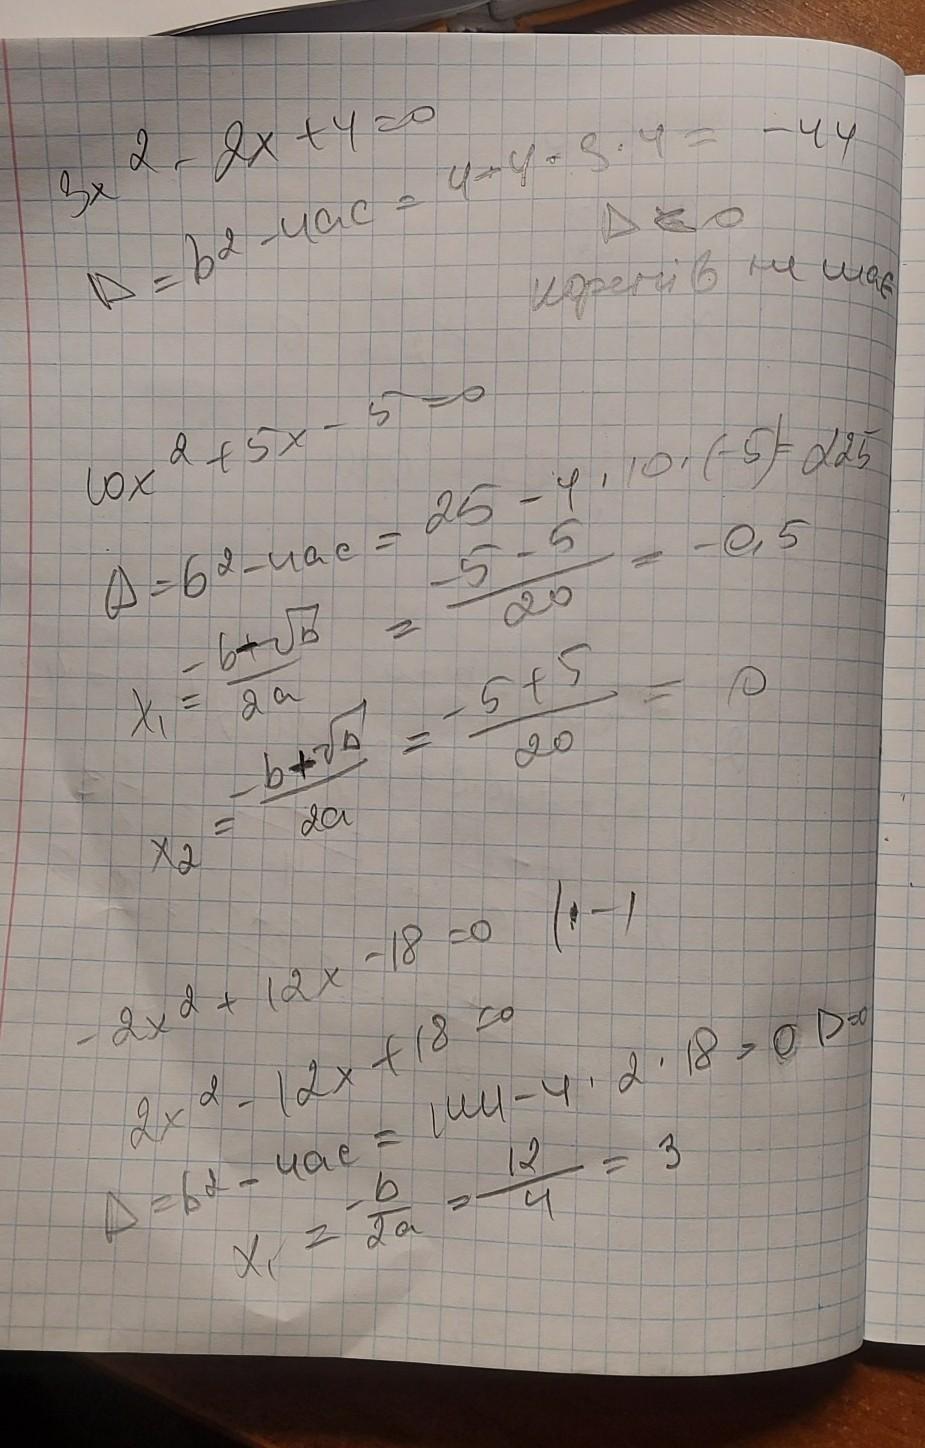 3x² - 2x + 4 = 0
D = b² - 4ac = 4 - 4 · 3 · 4 = -44
D < 0
коренів не має
10x² + 5x - 5 = 0
D = b² - 4ac = 25 - 4 · 10 · (-5) = 225
x₁ = -b+√D / 2a = -5-5 / 20 = -0,5
x₂ = -b+√D / 2a = -5+5 / 20 = 0
-2x² + 12x - 18 = 0 |· -1
2x² - 12x + 18 = 0
D = b² - 4ac = 144 - 4 · 2 · 18 = 0 D=0
x₁ = -b / 2a = 12 / 4 = 3